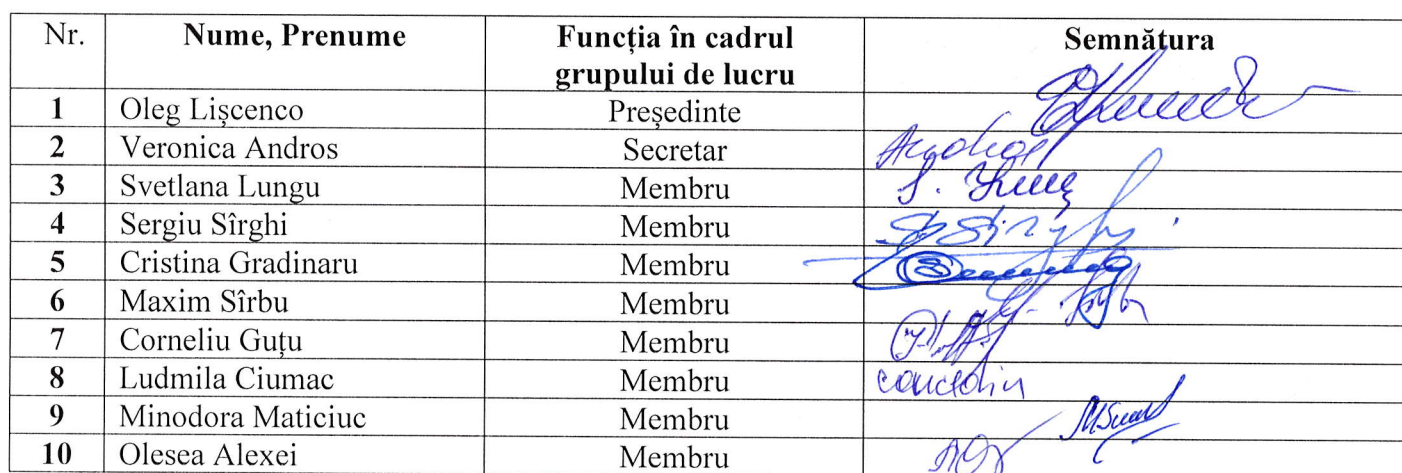 Nr. Nume, Prenume Funcția în cadrul grupului de lucru Semnătura
1 Oleg Lișcenco Președinte
2 Veronica Andros Secretar
3 Svetlana Lungu Membru
4 Sergiu Sîrghi Membru
5 Cristina Gradinaru Membru
6 Maxim Sîrbu Membru
7 Corneliu Guțu Membru
8 Ludmila Ciumac Membru concediu
9 Minodora Maticiuc Membru
10 Olesea Alexei Membru